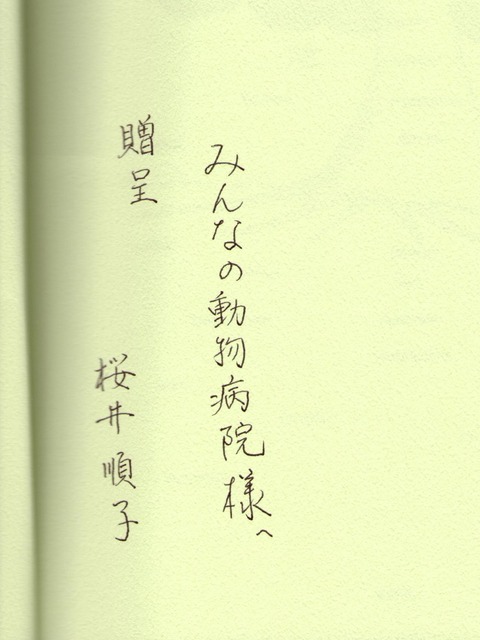 みんなの動物病院様へ
贈呈
桜井順子